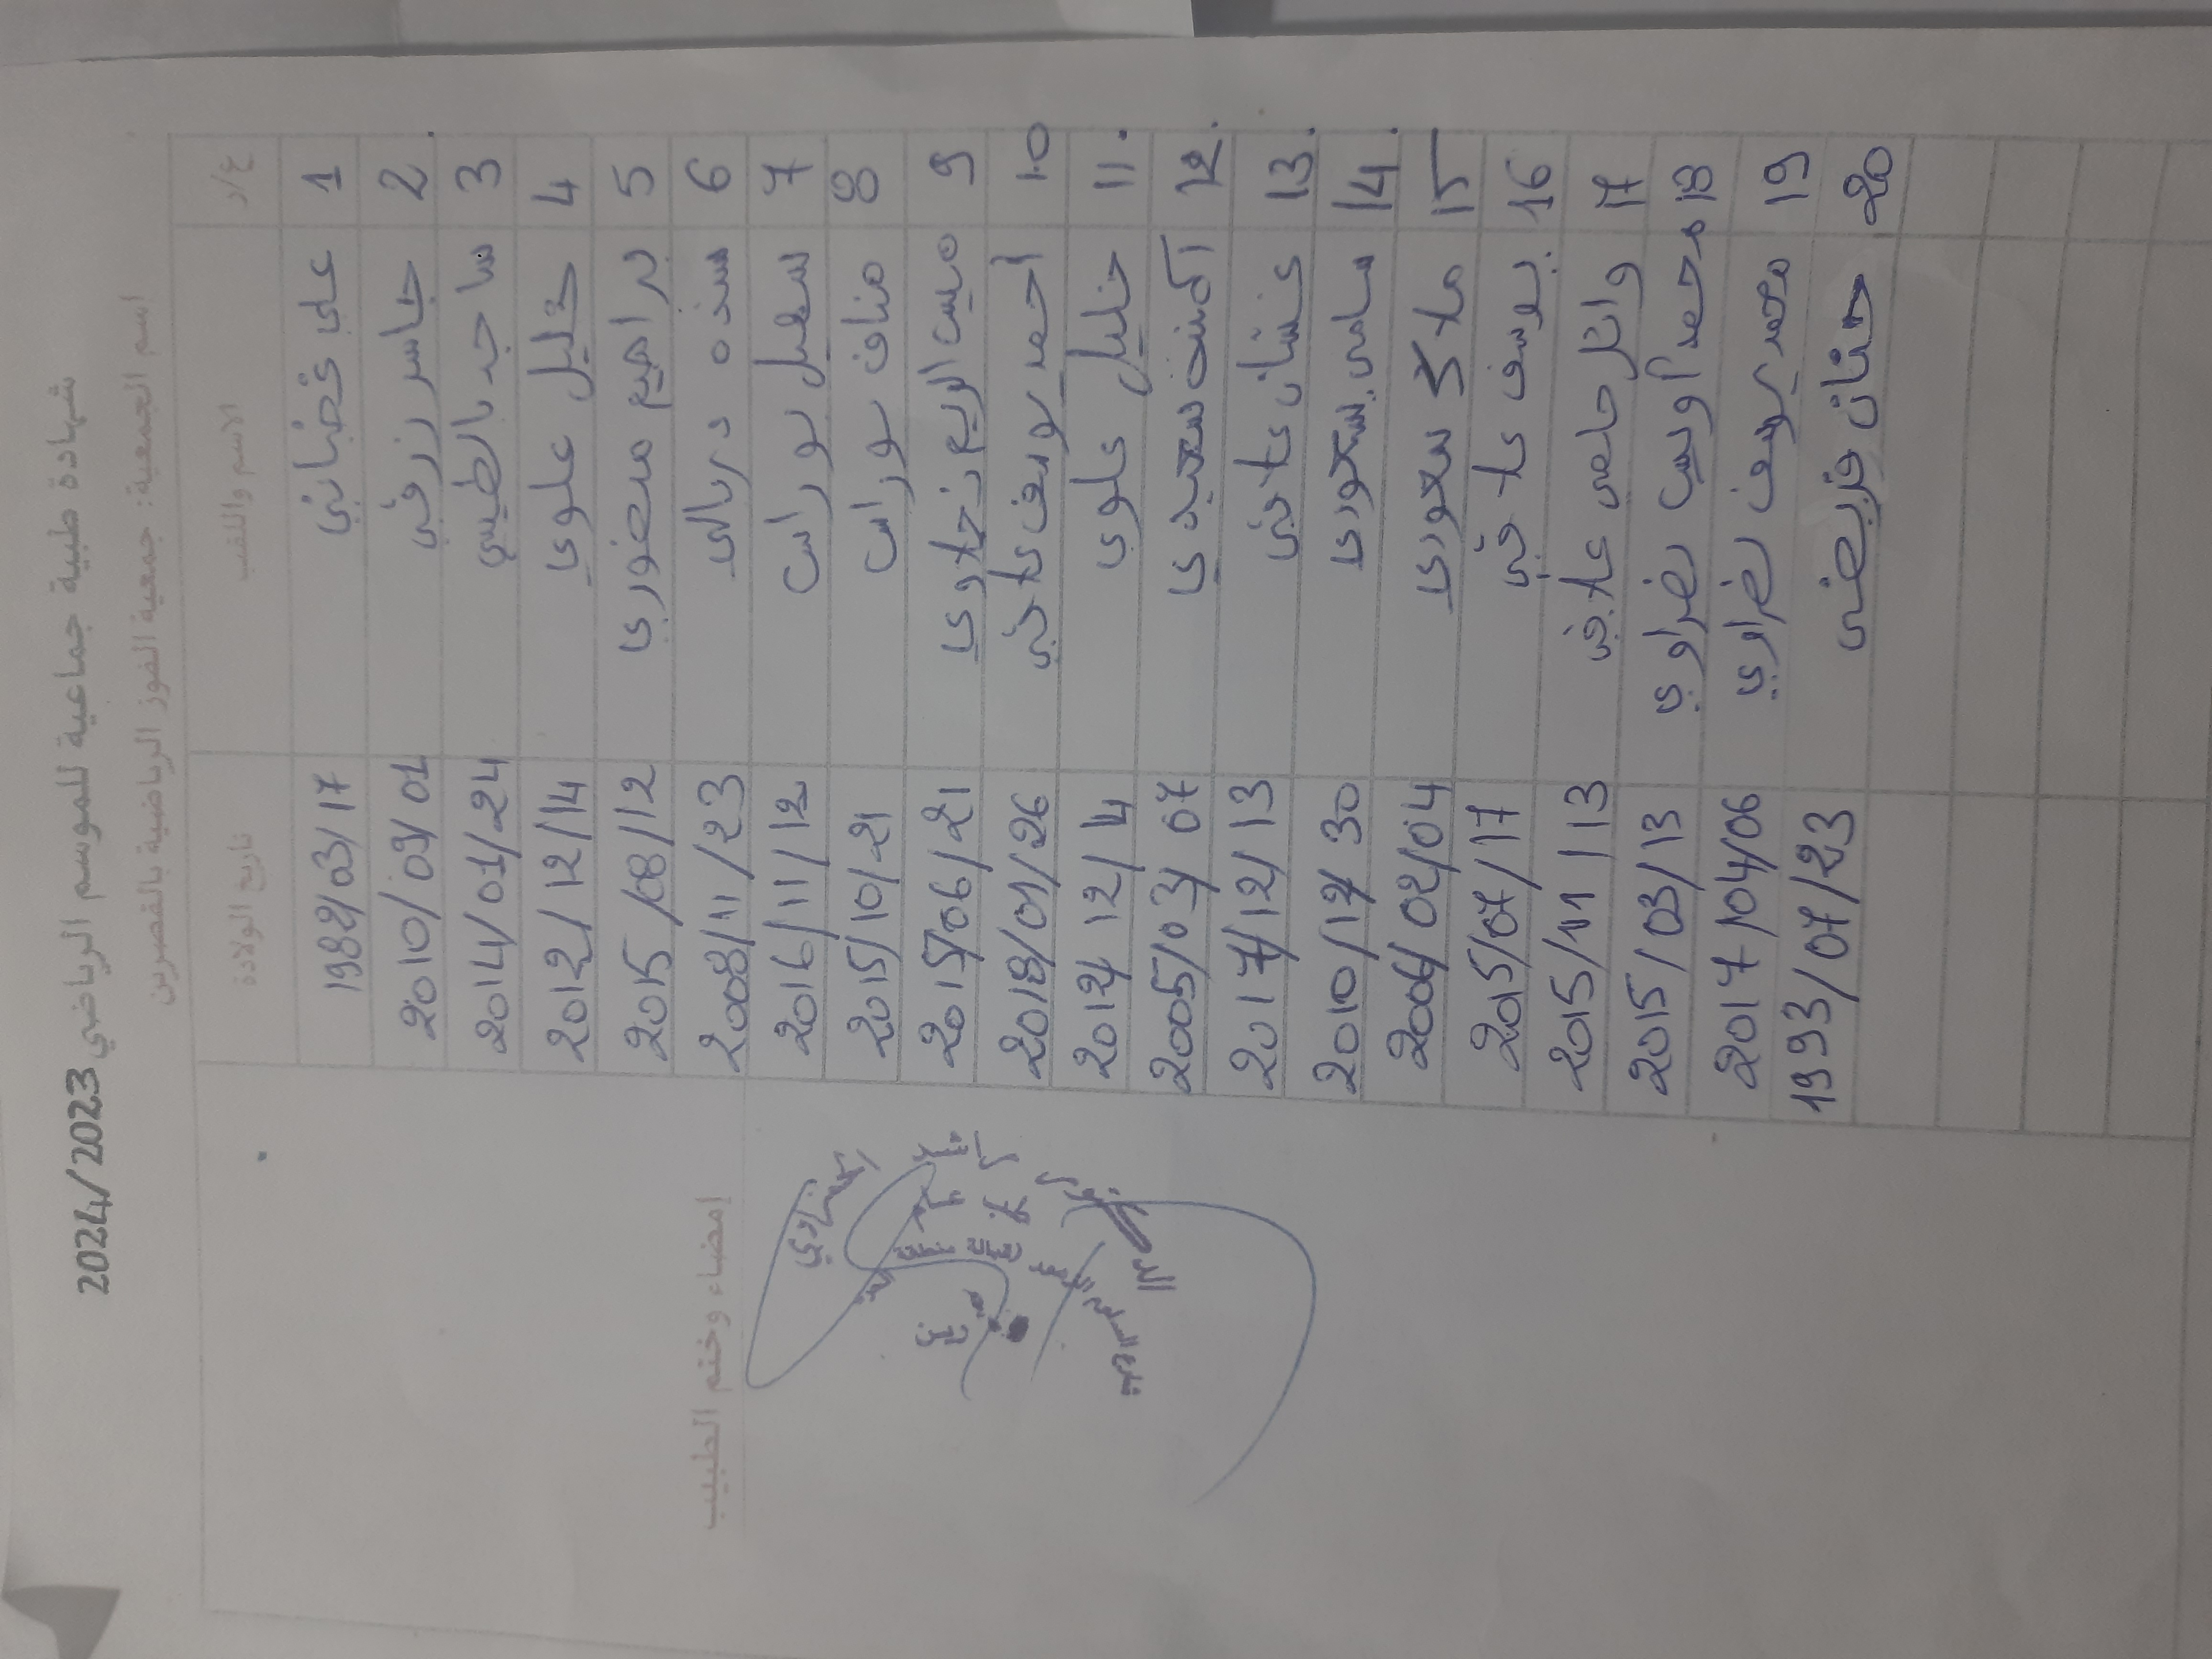 شهادة طبية جماعية للموسم الرياضي 2024/2023
اسم الجمعية: جمعية الفوز الرياضية بالقصرين
ع/ر الاسم واللقب تاريخ الولادة
1 علي غضباني 1982/03/17
2 جاسر زرقي 2010/09/01
3 ساجد بالطيبي 2014/01/24
4 خليل علوي 2012/12/14
5 براهيم منصوري 2015/08/12
6 سنده دربالي 2008/11/23
7 سهيل بوراس 2016/11/12
8 مناف بوراس 2015/10/21
9 ميس الريم 2015/06/21
10 أحمد يوسف عافي 2018/01/26
11 خليل علوي 2012/12/4
12 آمنة سعيدي 2005/03/07
13 غسان عافي 2017/12/13
14 سلمى سحوري 2010/12/30
15 ملاك سحوري 02/04
16 يوسف عافي 2015/07/17
17 عافي 2015/11/13
18 محمد أويس نصراوي 2015/03/13
19 محمد يوسف نصراوي 2017/04/06
20 حنان قريضي 1993/07/23
إمضاء وختم الطبيب